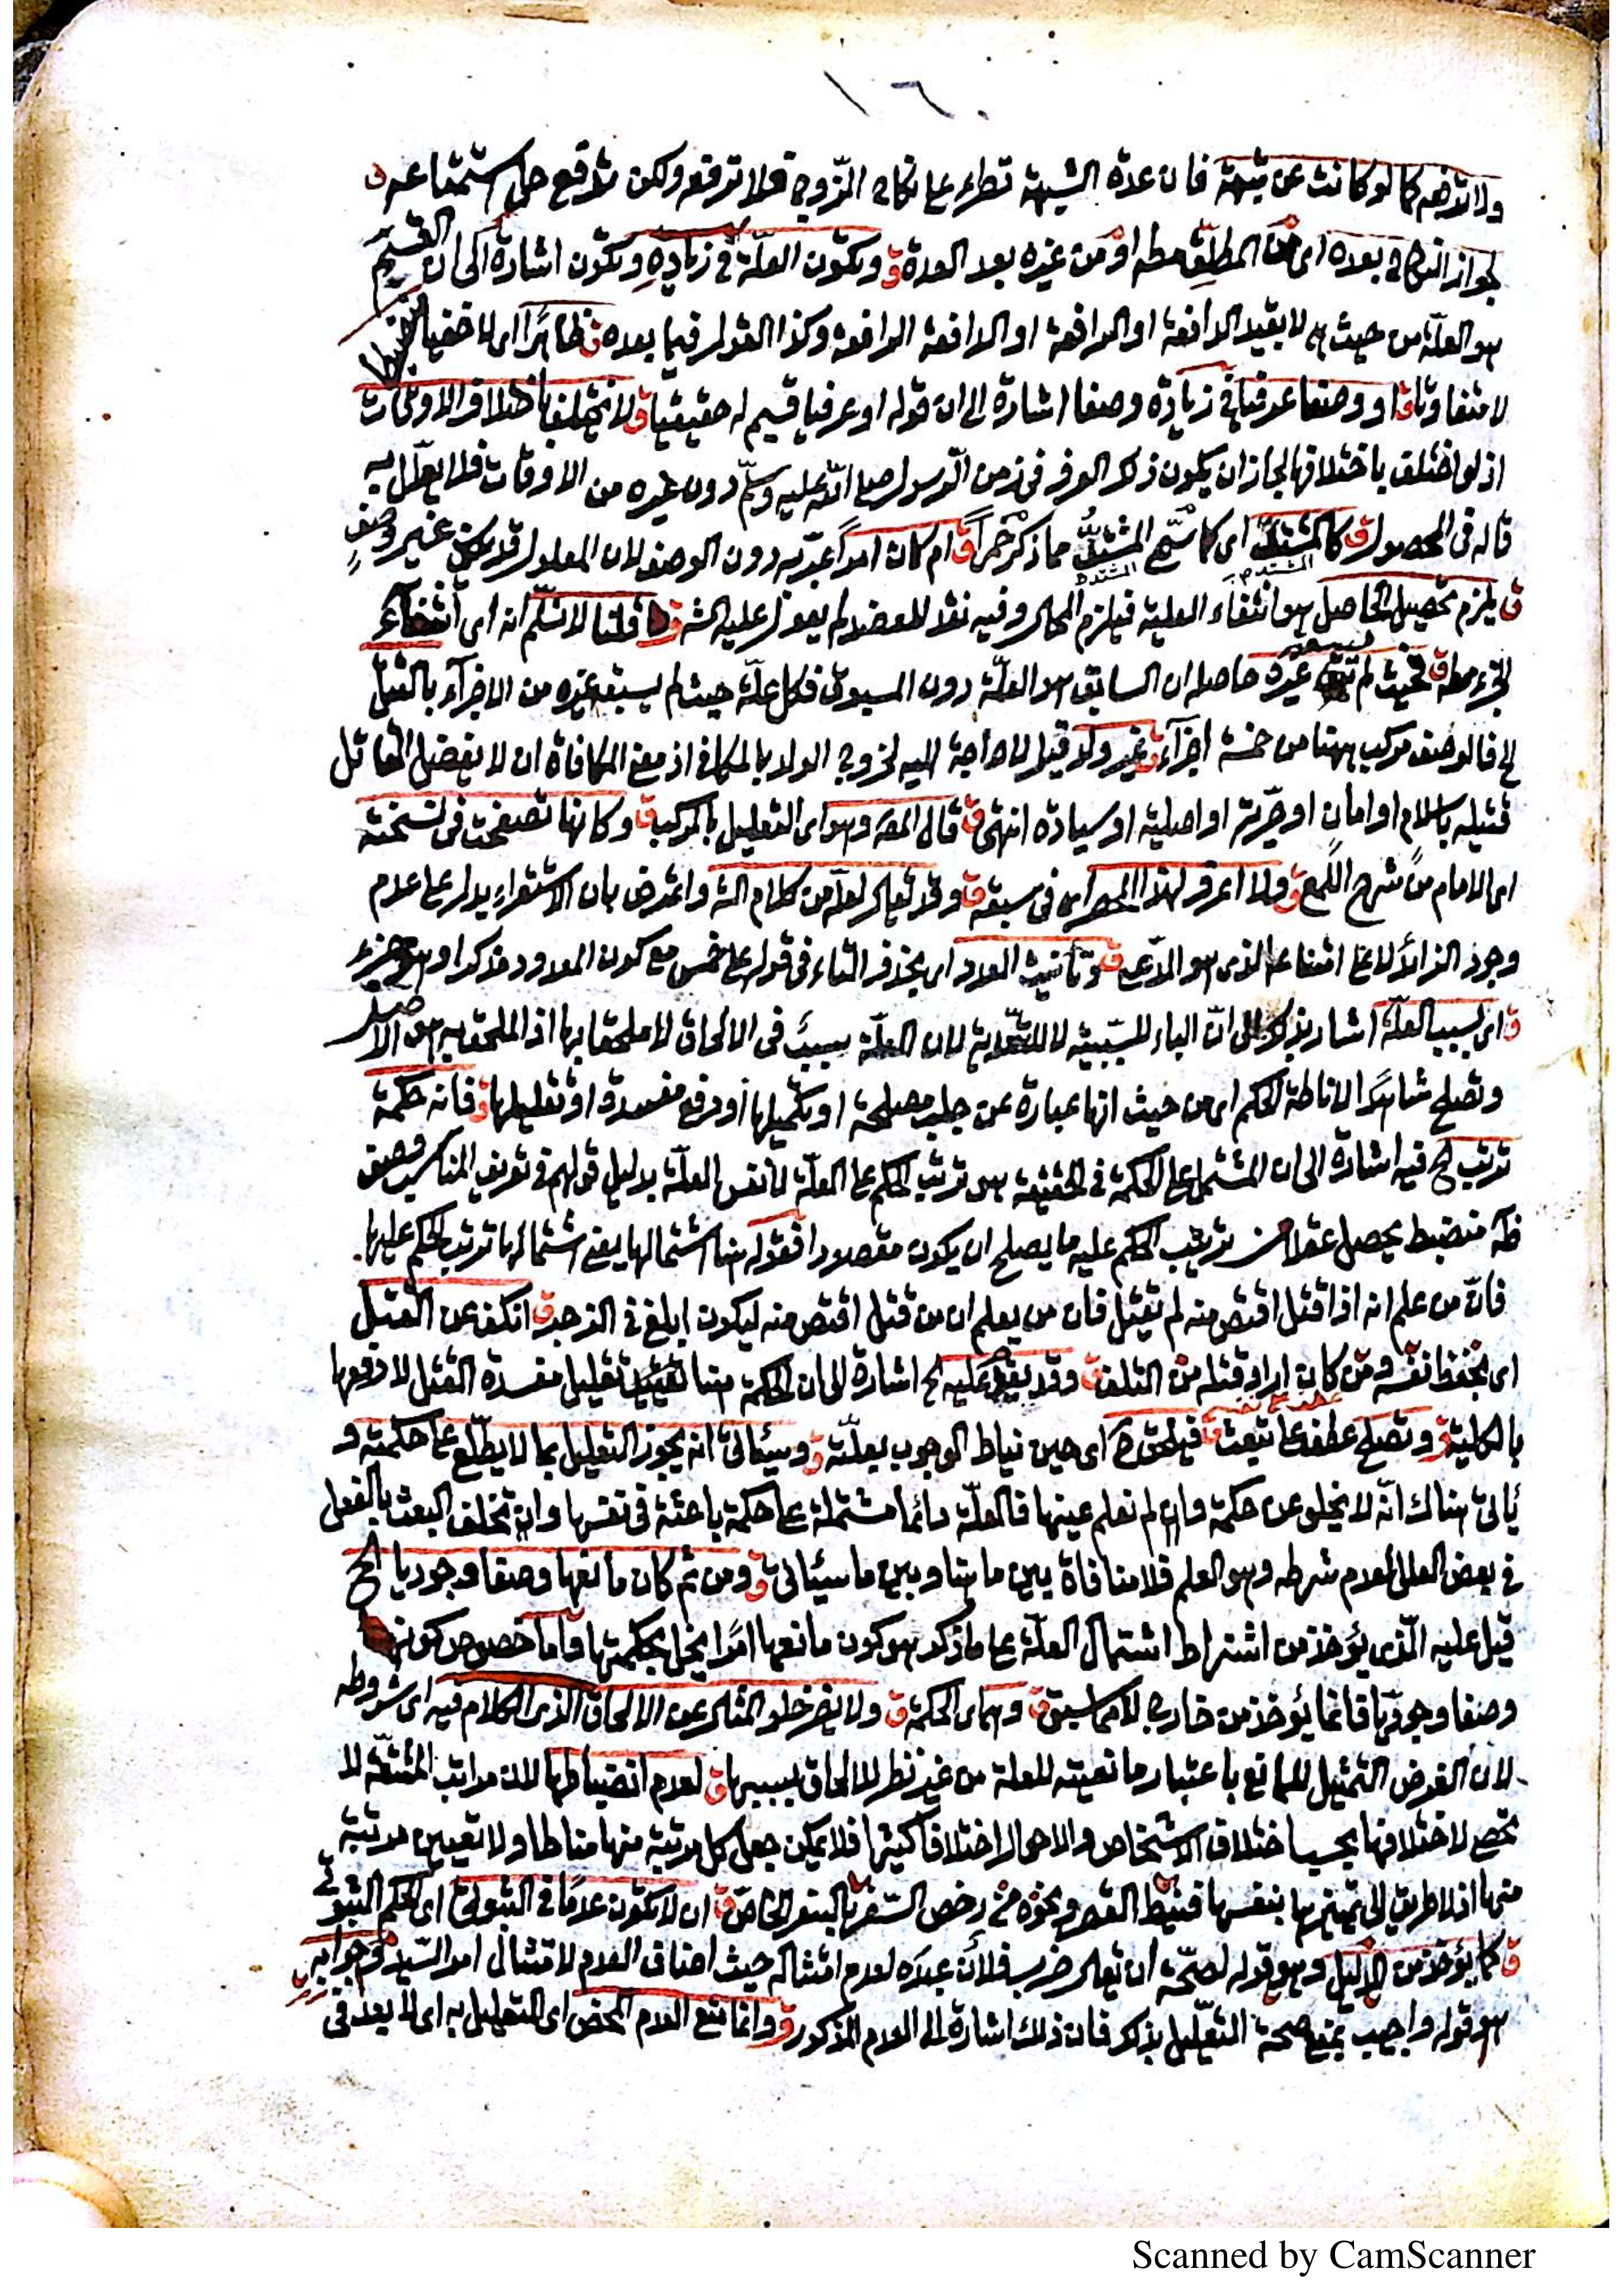 ولا ترفعه كما لو كانت عن شبهة فان عدة الشبهة تطرء على نكاح الزوج فلا ترفعه ولكن ترفع حل استمتاعه ق
لجواز النكاح بعده اى من المطلق مطه او من غيره بعد العدة ق وتكون العلة فى زيادة وتكون اشارة الى ان القسيم
هو العلة من حيث هى لا بقيد الدافعة او الرافعة او الدافعة الرافعة وكذا القول فيما بعده ق ظاهرا اى لا خفيا منضبطا
لا متفاوتا ق او وصفا عرفيا فى زيادة وصفا اشارة الى ان قوله او عرفيا قسيم له حقيقيا ق لا يختلف باختلاف الاوقات
اذ لو اختلف باختلافها لجاز ان يكون ذلك العرف فى زمن الرسول صلى الله عليه وسلم دون غيره من الاوقات فلا يعلل به
قاله فى المحصول ق كالمشتد اى كما سمى المشتد مما ذكر خمرا ق ام كان امرا عبر به دون الوصف لان المعلول قد يكون غير وصف
ق يلزم تحصيل الحاصل هو انتفاء العلية فيلزم المحال وفيه نقد للعضد لم يعول عليه الشه ق قلنا لا نسلم انه اى انتفاء
الجزء مطه ق فحيث لم يسبقه غيره حاصله ان السابق هو العلة دون المسبوق فكل علة حيث لم يسبقه غيره من الاجزاء بالقتل
الخ فالوصف مركب ههنا من خمسة اجزاء ق غير ولد قيل لا حاجة اليه لخروج الولد بالمكافى اذ معنى المكافاة ان لا يفضل القاتل
قتيله باسلام او امان او حرية او اصلية او سيادة انتهى ق قال المصه وهو اى التعليل بالمركب ق وكانها تصفحت فى نسخته
اى الامام من شرح اللمع ق ولا اعرف لهذا الحصر اى فى سبعة ق وقد يقال لعله من كلام الشه واعترض بان الاستقراء يدل على عدم
وجود الزائد لا على امتناعه الذى هو المدعى ق وتأنيث العدد اى بحذف التاء فى قوله على خمس مع كون المعدود مذكرا وهو جزء
ق اى بسبب العلة اشار بذلك الى ان الباء للسببية لا للتعدية لان العلة سبب فى الالحاق لا ملحقا بها اذ الملحق به هو الاصل
وتصلح شاهدا لاناطة الحكم اى من حيث انها عبارة عن جلب مصلحة او تكميلها او دفع مفسدة او تقليلها ق فانه حكمة
ترتب الخ فيه اشارة الى ان المشتمل على الحكمة فى الحقيقة هو ترتب الحكم على العلة لا نفس العلة بدليل قولهم فى تعريف المناسب وصف
ظه منضبط يحصل عقلا من ترتيب الحكم عليه ما يصلح ان يكون مقصودا فقوله هنا اشتمالها يعنى اشتمالها ترتب الحكم عليها
فان من علم انه اذا قتل اقتص منه لم يقتل فان من يعلم ان من قتل اقتص منه ليكون ابلغ فى الزجر ق انكف عن القتل
اى يحفظ نفسه ومن كان اراد قتله من التلف ق وقد يقدم عليه الخ اشارة الى ان الحكمة هنا تقليل مفسدة القتل لا دفعها
بالكلية ق وتصلح عطف على تبعث ق فيلحق ح اى حين نياط الوجوب بعلته ق وسيأتى انه يجوز التعليل بما لا يطلع على حكمته و
يأتى هناك انه لا يخلو عن حكمة وان لم نعلم عينها فالعلة دائما مشتملة على حكمة باعثة فى نفسها وان تخلف البعث بالفعل
فى بعض العلل لعدم شرطه وهو العلم فلا منافاة بين ما هنا وبين ما سيأتى ق ومن ثم كان مانعها وصفا وجوديا الخ
قيل عليه الذى يؤخذ من اشتراط اشتمال العلة على ما ذكر هو كون مانعها امرا يخل بحكمتها واما خصوص كونه
وصفا وجوديا فانما يؤخذ من خارج لا مما سبق ق وهى اى الحكمة ق ولا يضر خلو المثال عن الالحاق الذى الكلام فيه اى شروطه
لان الغرض التمثيل للمانع باعتبار مانعيته للعلة من غير نظر للالحاق بسببها ق لعدم انضباطها لان مراتب المشقة لا
تحصى لاختلافها بحسب اختلاف الاشخاص والاحوال اختلافا كثيرا فلا يمكن جعل كل مرتبة منها مناطا ولا تعيين مرتبة
منها اذ لا طريق الى تمييزها بنفسها فنيط القصر ونحوه من رخص السفر بالسفر الخاص ق ان لا تكون عدما فى الثبوتى اى الحكم الثبوتى
ق كما يؤخذ من الدليل وهو قوله لصحة ان يقال ضرب فلان عبده لعدم امتثاله حيث اضاف العدم لامتثال امر السيد وجوابه
هو قوله واجيب بمنع صحة التعليل بذلك فان ذلك اشارة الى العدم المذكور ق وانما منع العدم المحض اى التعليل به اى لا يعد فى
Scanned by CamScanner